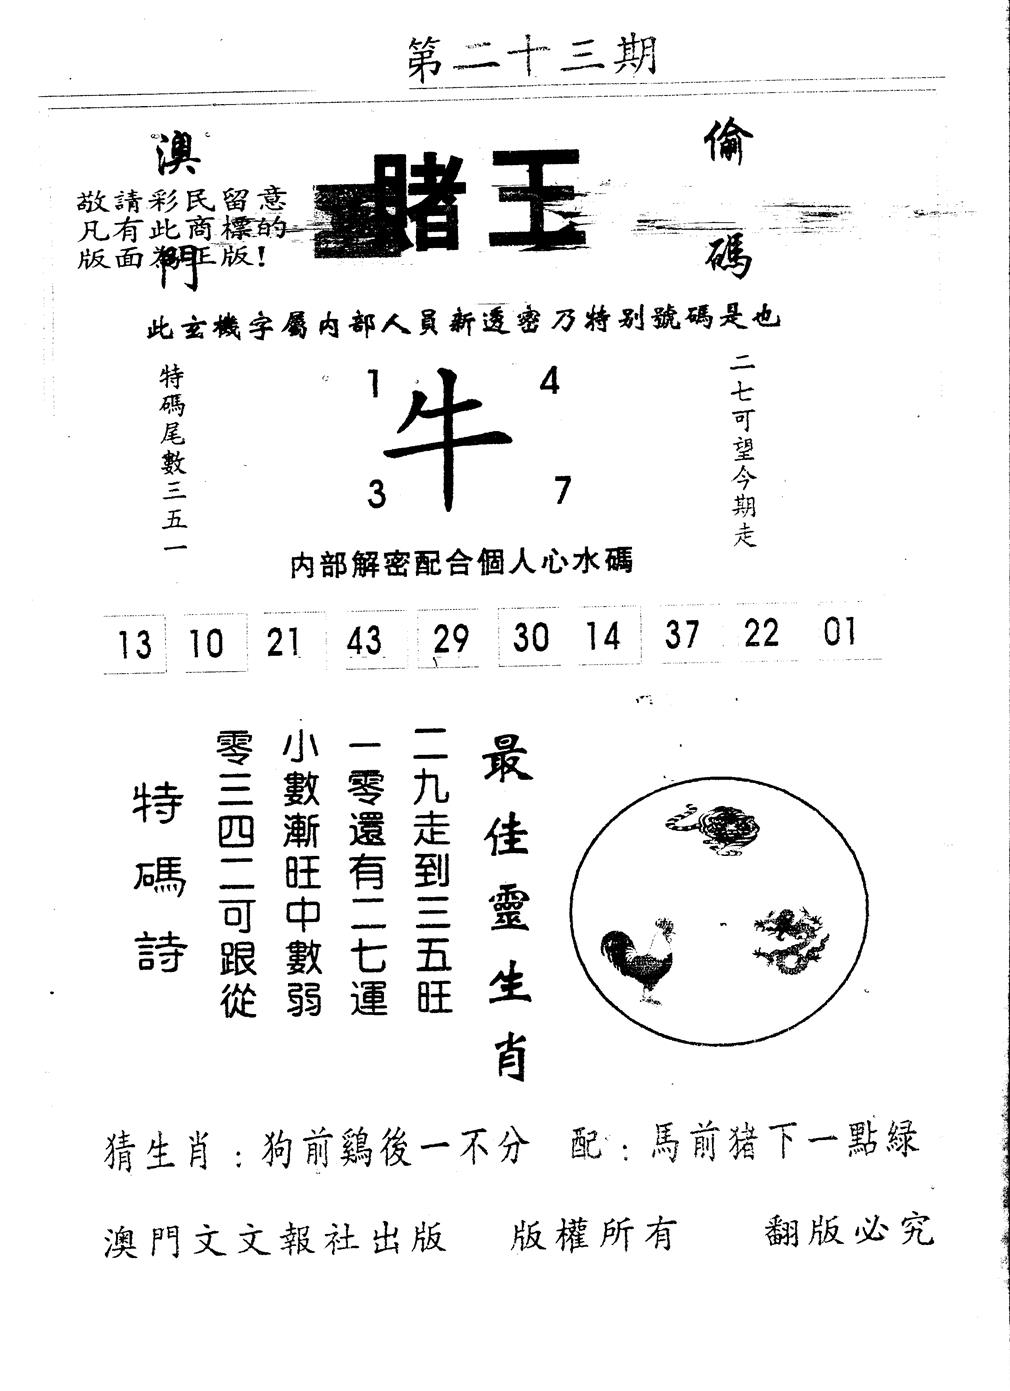 第二十三期
澳門
賭王
偷碼
敬請彩民留意
凡有此商標的
版面為正版!
此玄機字屬内部人員新透密乃特别號碼是也
特碼尾數三五一
1
4
牛
3
7
二七可望今期走
内部解密配合個人心水碼
13 10 21 43 29 30 14 37 22 01
最佳靈生肖
二九走到三五旺
一零還有二七運
小數漸旺中數弱
零三四二可跟從
特碼詩
猜生肖:狗前鷄後一不分 配:馬前猪下一點緑
澳門文文報社出版 版權所有 翻版必究